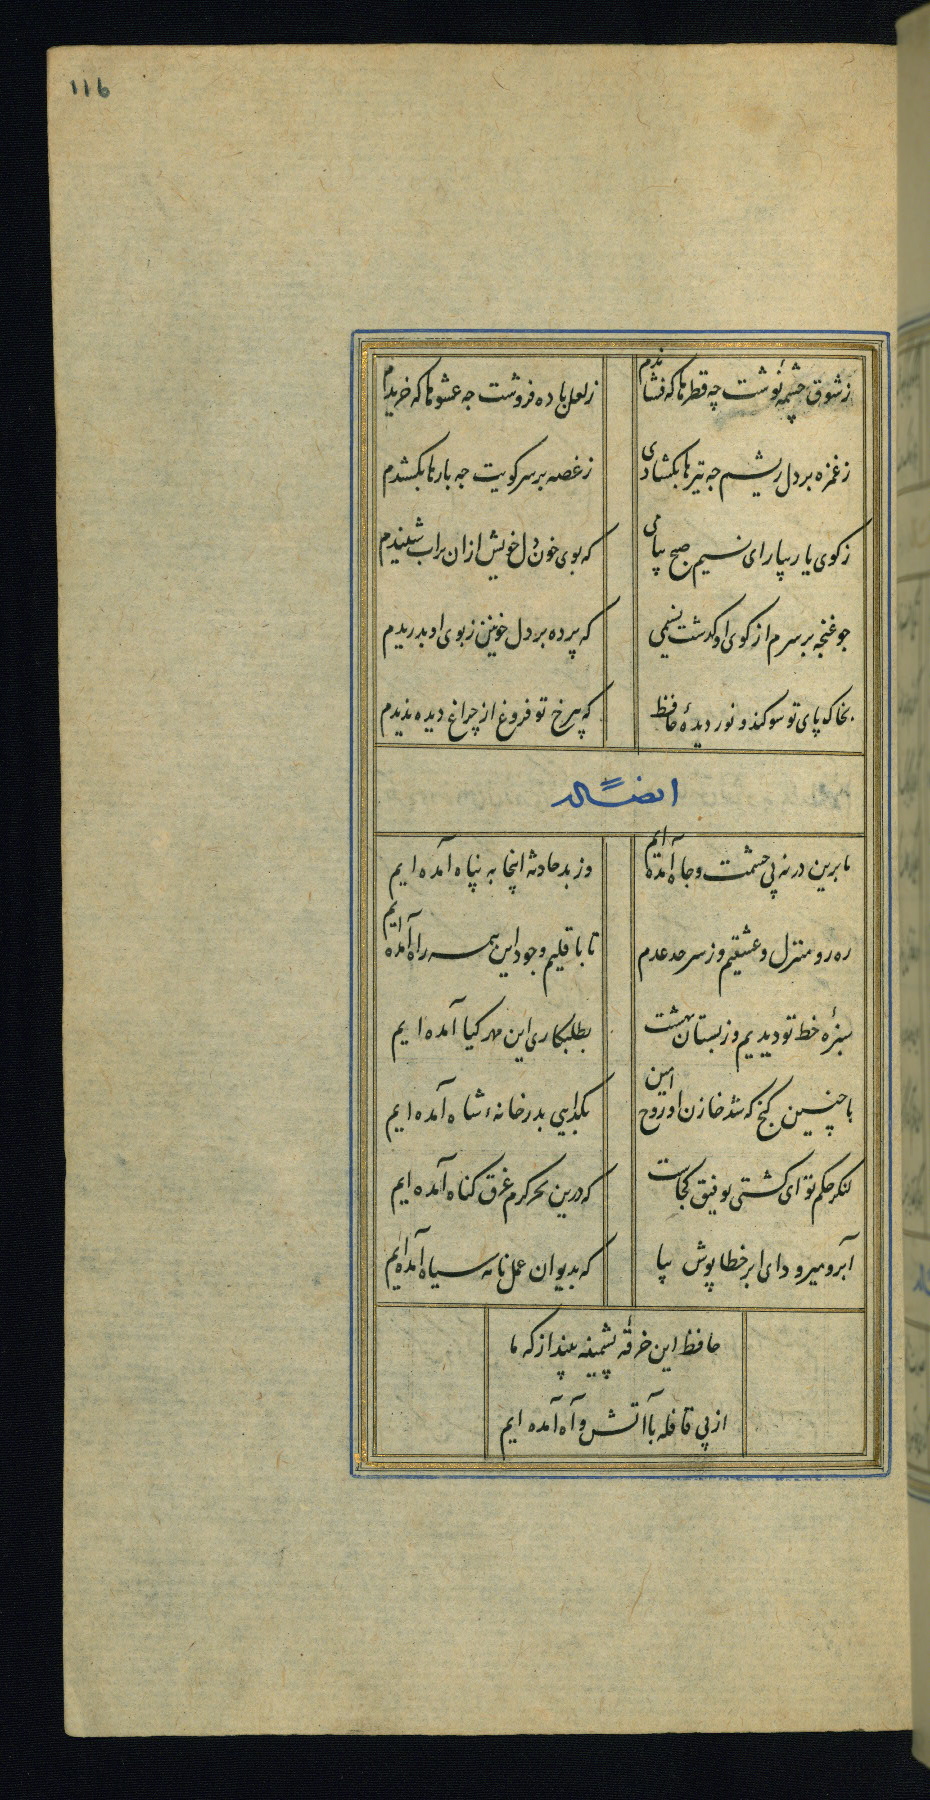 116
ز شوق چشمهٔ نوشت چه قطرها که فشاندم
ز لعل باده فروشت چه عشوها که خریدم
ز غمزه بر دل ریشم چه تیرها بکشادی
ز غصه بر سر کویت چه بارها بکشیدم
ز کوی یار بیار ای نسیم صبح پیامی
که بوی خون دل خویش ازان تراب شنیدم
چو غنچه بر سرم از کوی او گذشت نسیمی
که پرده بر دل خونین ز بوی او بدریدم
بخاک پای تو سوکند و نور دیدهٔ حافظ
که بی رخ تو فروغ از چراغ دیده ندیدم
ایضاً له
ما برین در نه پی حشمت و جاه آمده ایم
وز بد حادثه اینجا به پناه آمده ایم
ره رو منزل و عشقیم و ز سرحد عدم
تا باقلیم وجود این همه راه آمده ایم
سبزهٔ خط تو دیدیم و ز بستان بهشت
بطلبکاری این مهر کیا آمده ایم
با چنین کنج که شد خازن او روح امین
بکدایی بدر خانهٔ شاه آمده ایم
لنکر حکم تو ای کشتی توفیق کجاست
که درین بحر کرم غرق کناه آمده ایم
آبرو میرود ای ابر خطا پوش بیا
که بدیوان عمل نامه سیاه آمده ایم
حافظ این خرقهٔ پشمینه بینداز که ما
از پی قافله با آتش و آه آمده ایم